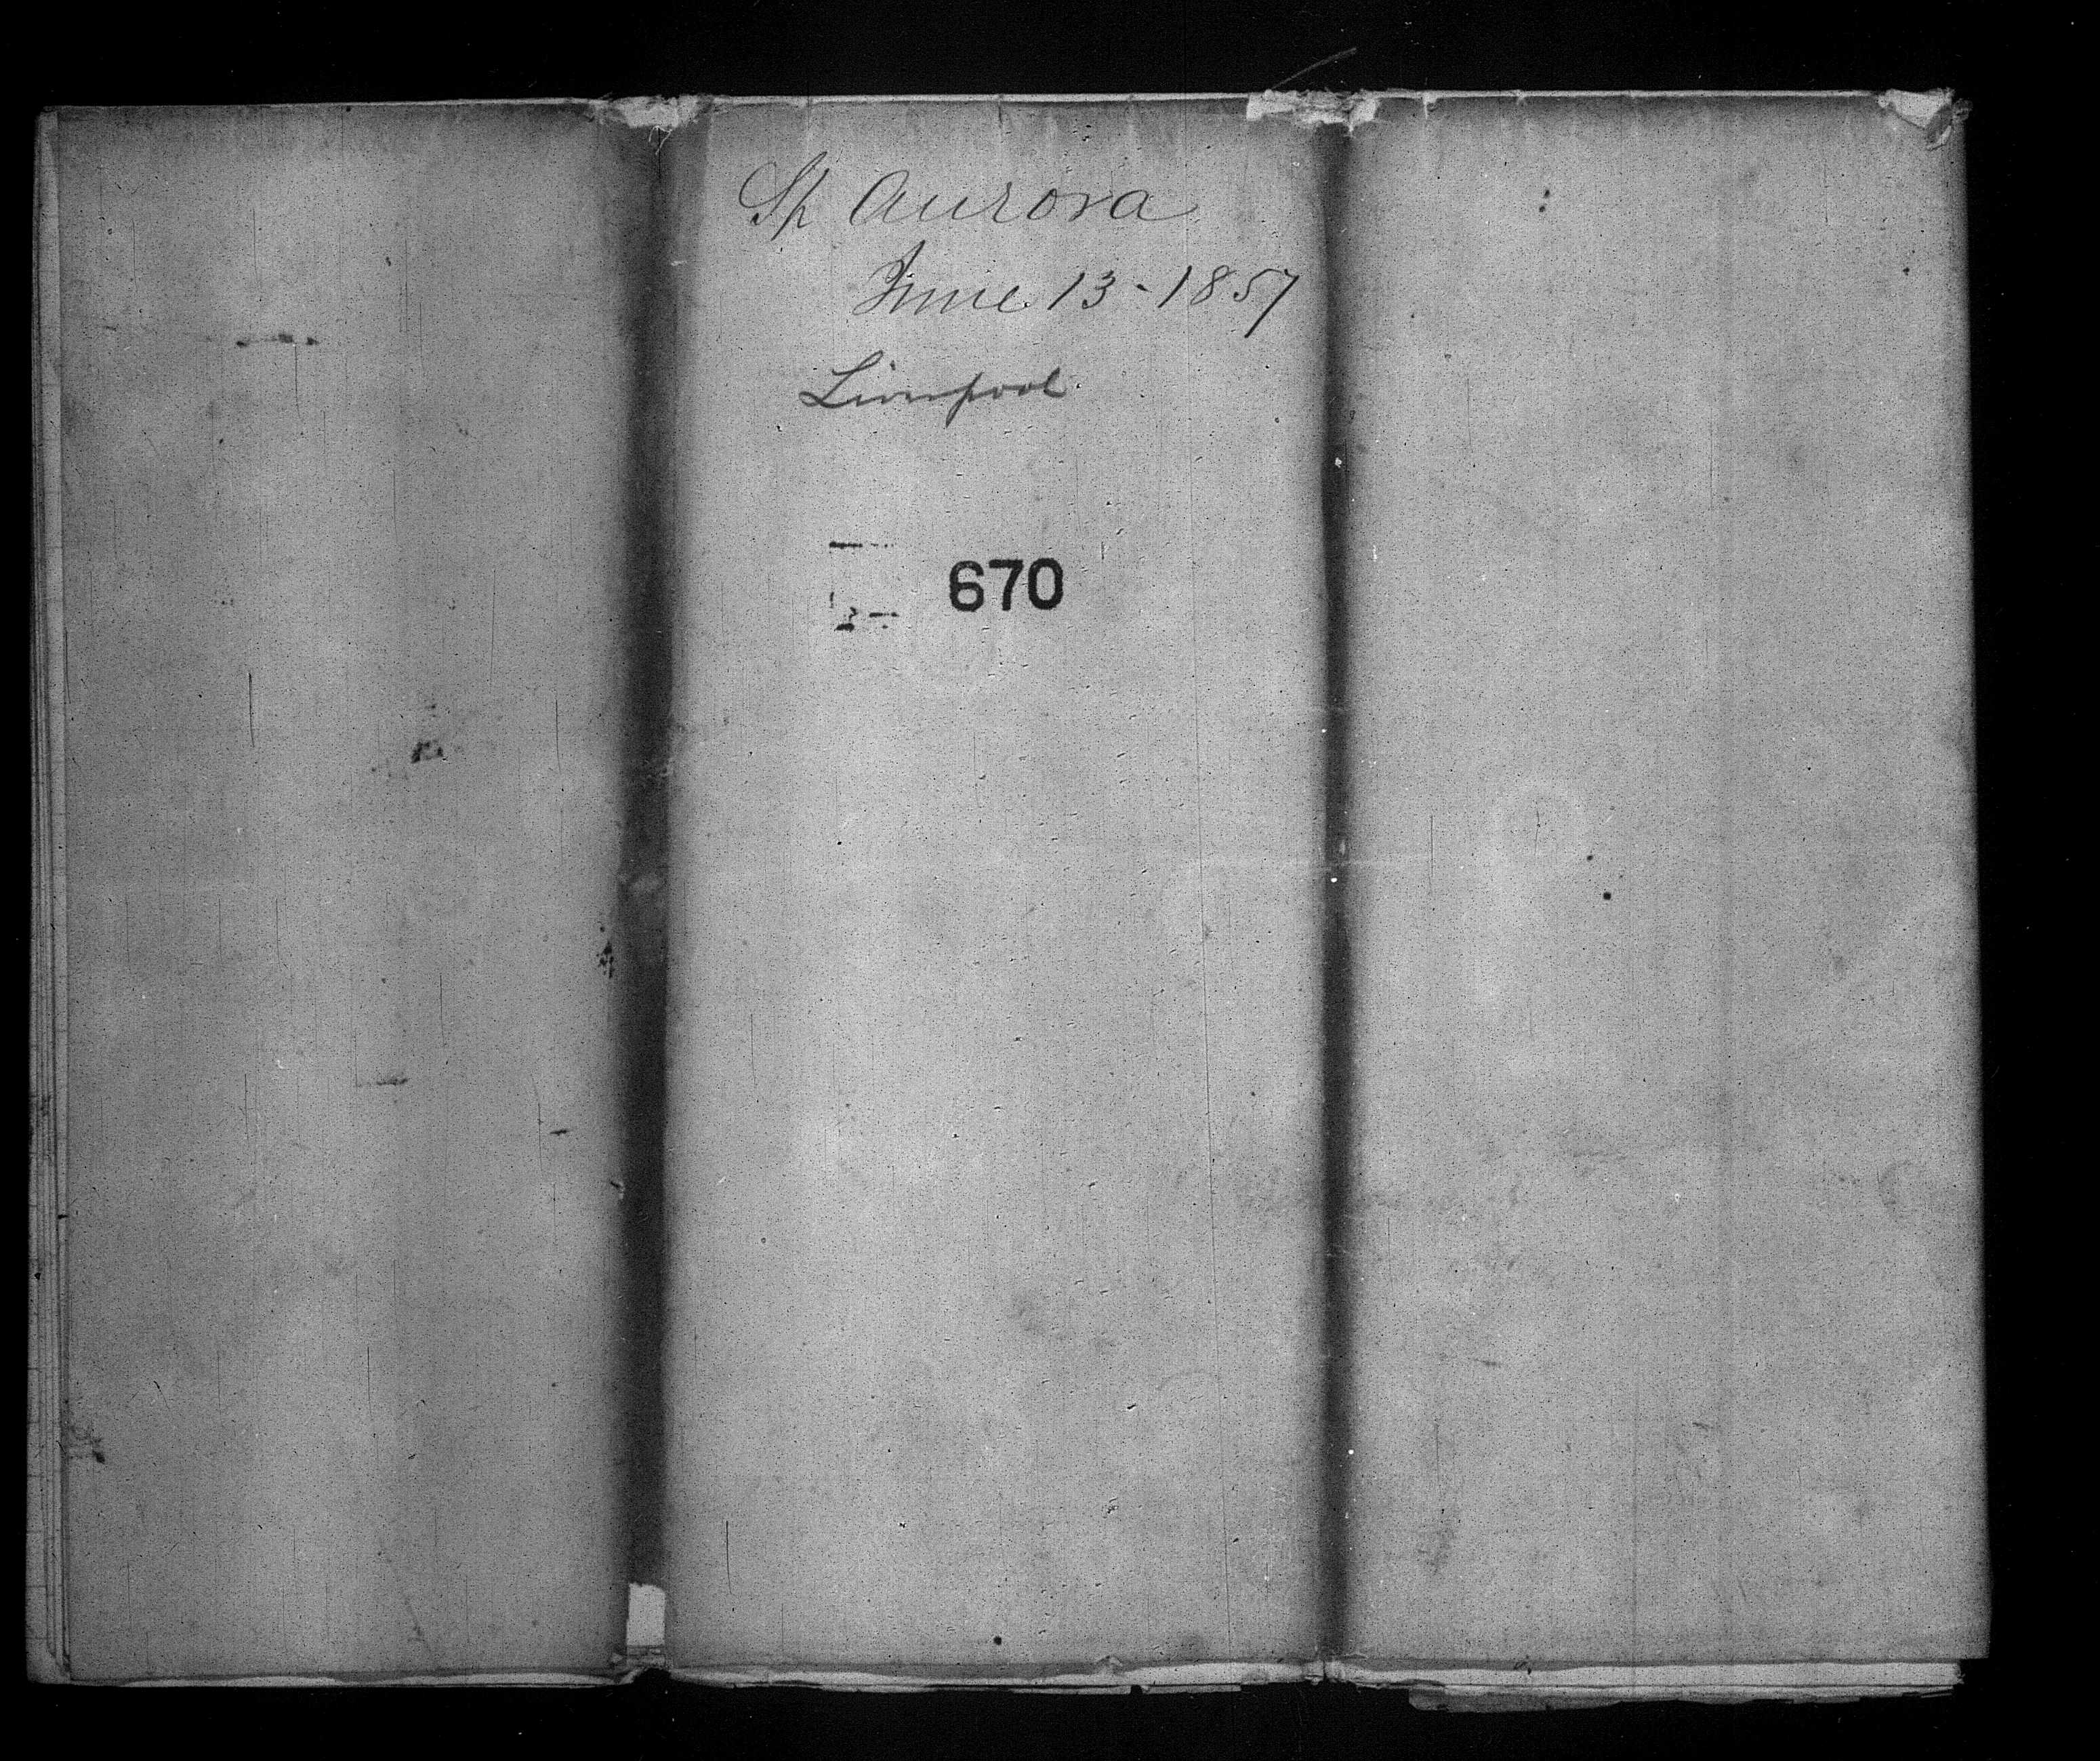 Sp Aurora
June 13 - 1857
Liverpool
670